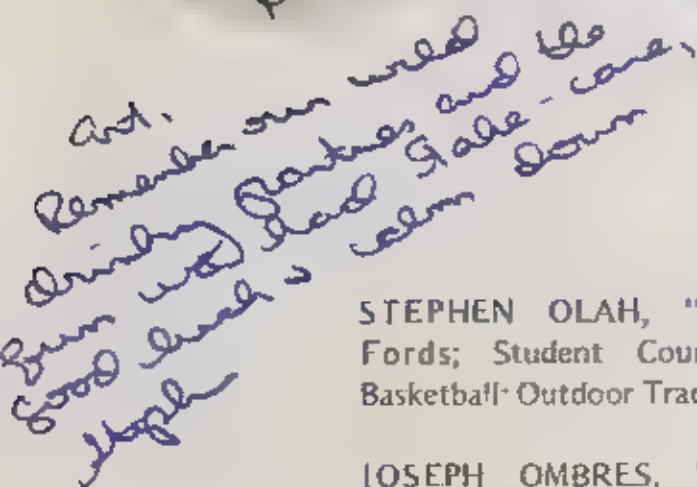 Art,
Remember our wild
drinking parties and the
fun we had. Take-care,
Good luck & calm down
STEPHEN OLAH, "
Fords; Student Cour
Basketball· Outdoor Trac
JOSEPH OMBRES,